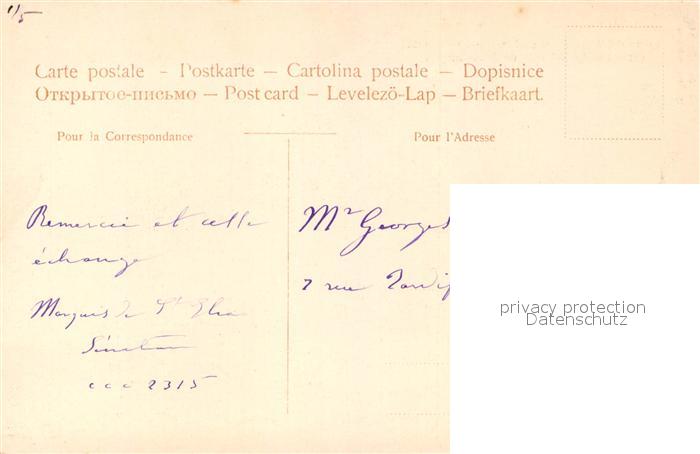 1/5
Carte postale – Postkarte – Cartolina postale – Dopisnice
Открытое-письмо – Post card – Levelezö-Lap – Briefkaart.
Pour la Correspondance
Pour l'Adresse
Remercie et
échange
Marquis de St
ccc 2315
Mr Georges
7 rue
privacy protection
Datenschutz